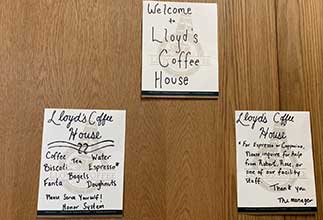 Welcome
to
Lloyd's
Coffee
House
Lloyd's Coffee
House
Coffee Tea Water
Biscoti Espresso*
Bagels
Fanta Doughnuts
Please Serve Yourself!
Honor System
Lloyds Coffee
House
*For Espresso or Cappucino,
Please inquire for help
from Robert, Rose, or
one of our facility
Staff.
Thank you
The manager